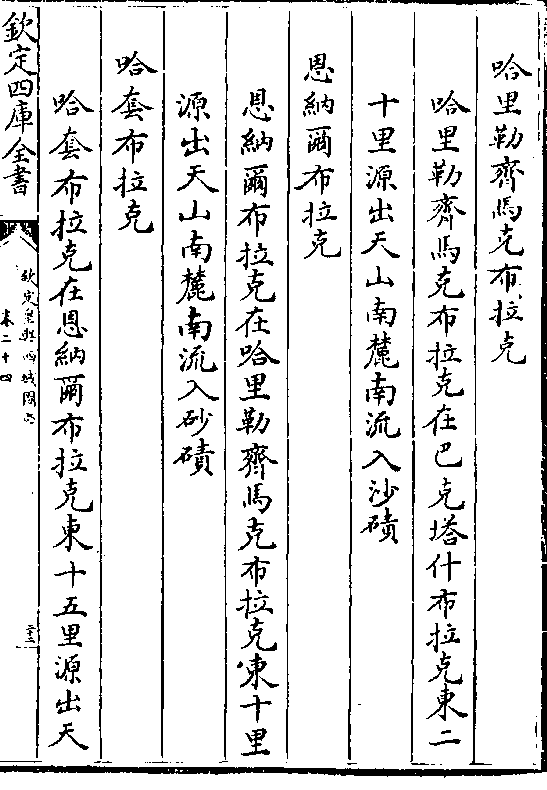 哈里勒齊馬克布拉克
哈里勒齊馬克布拉克在巴克塔什布拉克東二
十里源出天山南麓南流入沙磧
恩納爾布拉克
恩納爾布拉克在哈里勒齊馬克布拉克東十里
源出天山南麓南流入砂磧
哈套布拉克
哈套布拉克在恩納爾布拉克東十五里源出天
欽定四庫全書
欽定皇輿西域圖志
卷二十四